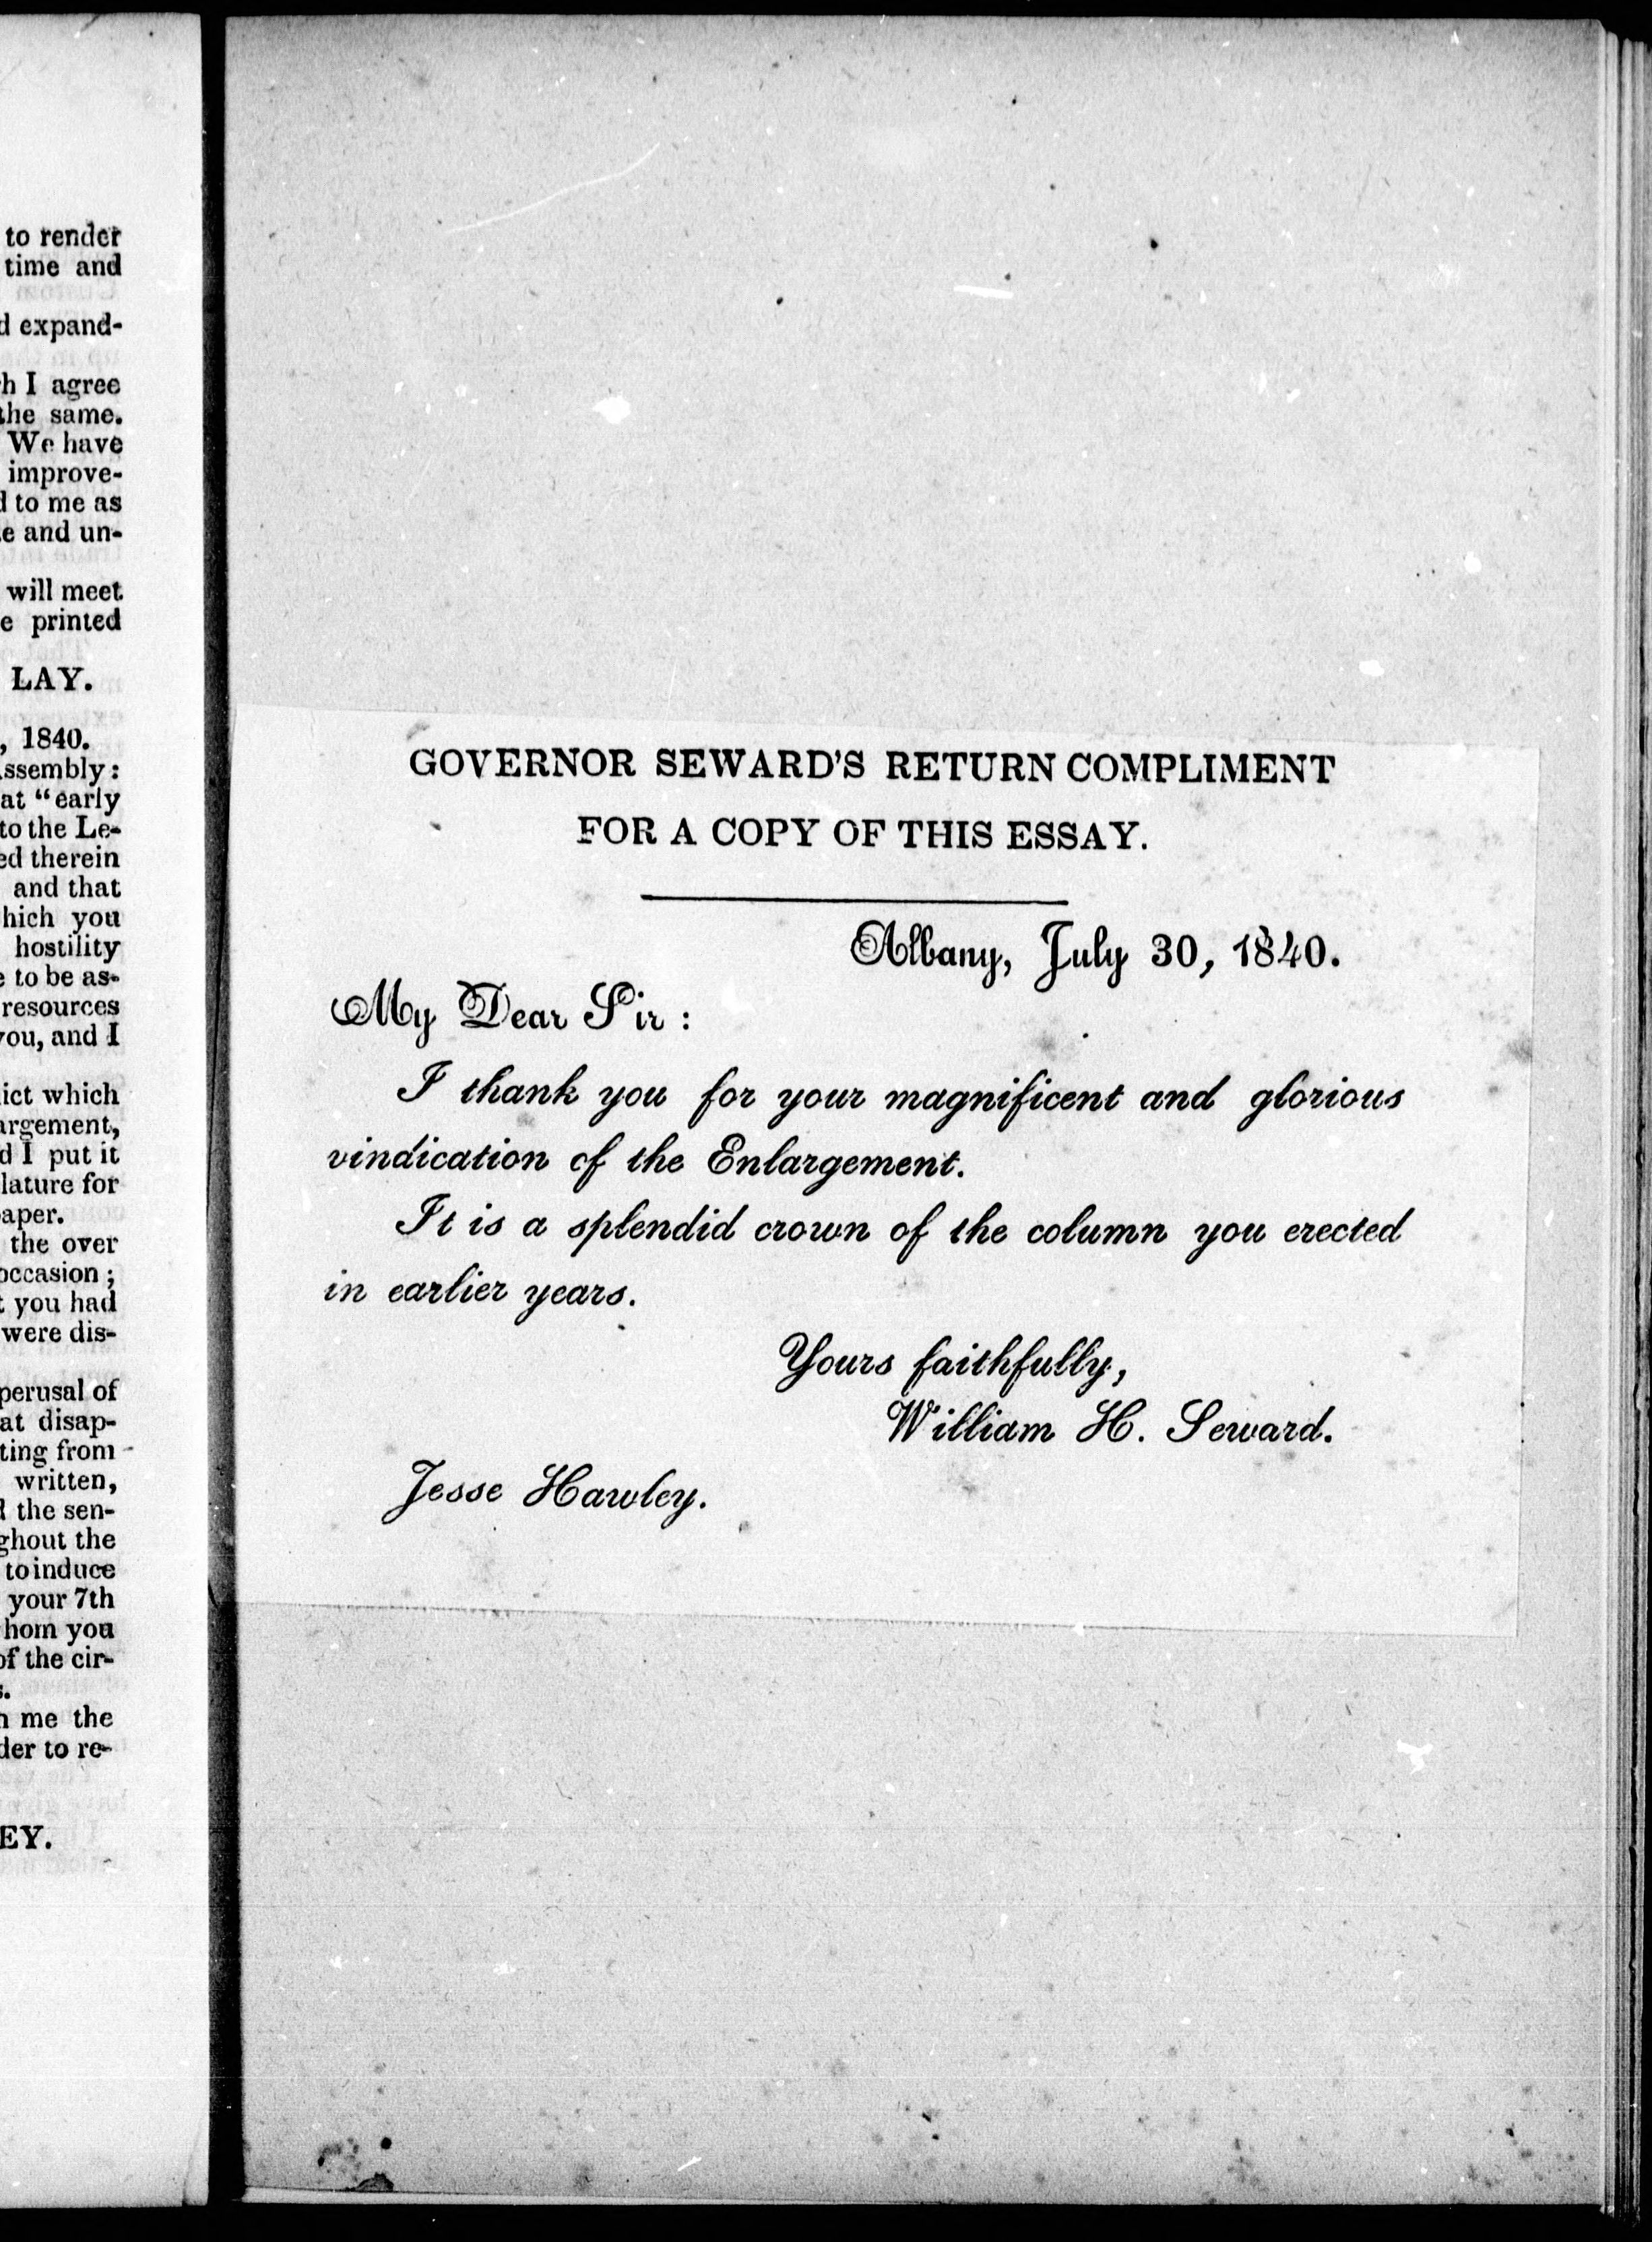 to render
time and
d expand-
h I agree
the same.
We have
improve-
d to me as
e and un-
will meet
e printed
LAY.
, 1840.
ssembly:
at "early
to the Le-
ed therein
and that
hich you
hostility
e to be as-
resources
you, and I
ict which
argement,
d I put it
lature for
paper.
the over
occasion;
t you had
were dis-
perusal of
at disap-
ting from
written,
d the sen-
ghout the
to induce
your 7th
hom you
of the cir-
s.
n me the
der to re-
EY.
GOVERNOR SEWARD'S RETURN COMPLIMENT
FOR A COPY OF THIS ESSAY.
Albany, July 30, 1840.
My Dear Sir:
I thank you for your magnificent and glorious
vindication of the Enlargement.
It is a splendid crown of the column you erected
in earlier years.
Yours faithfully,
William H. Seward.
Jesse Hawley.